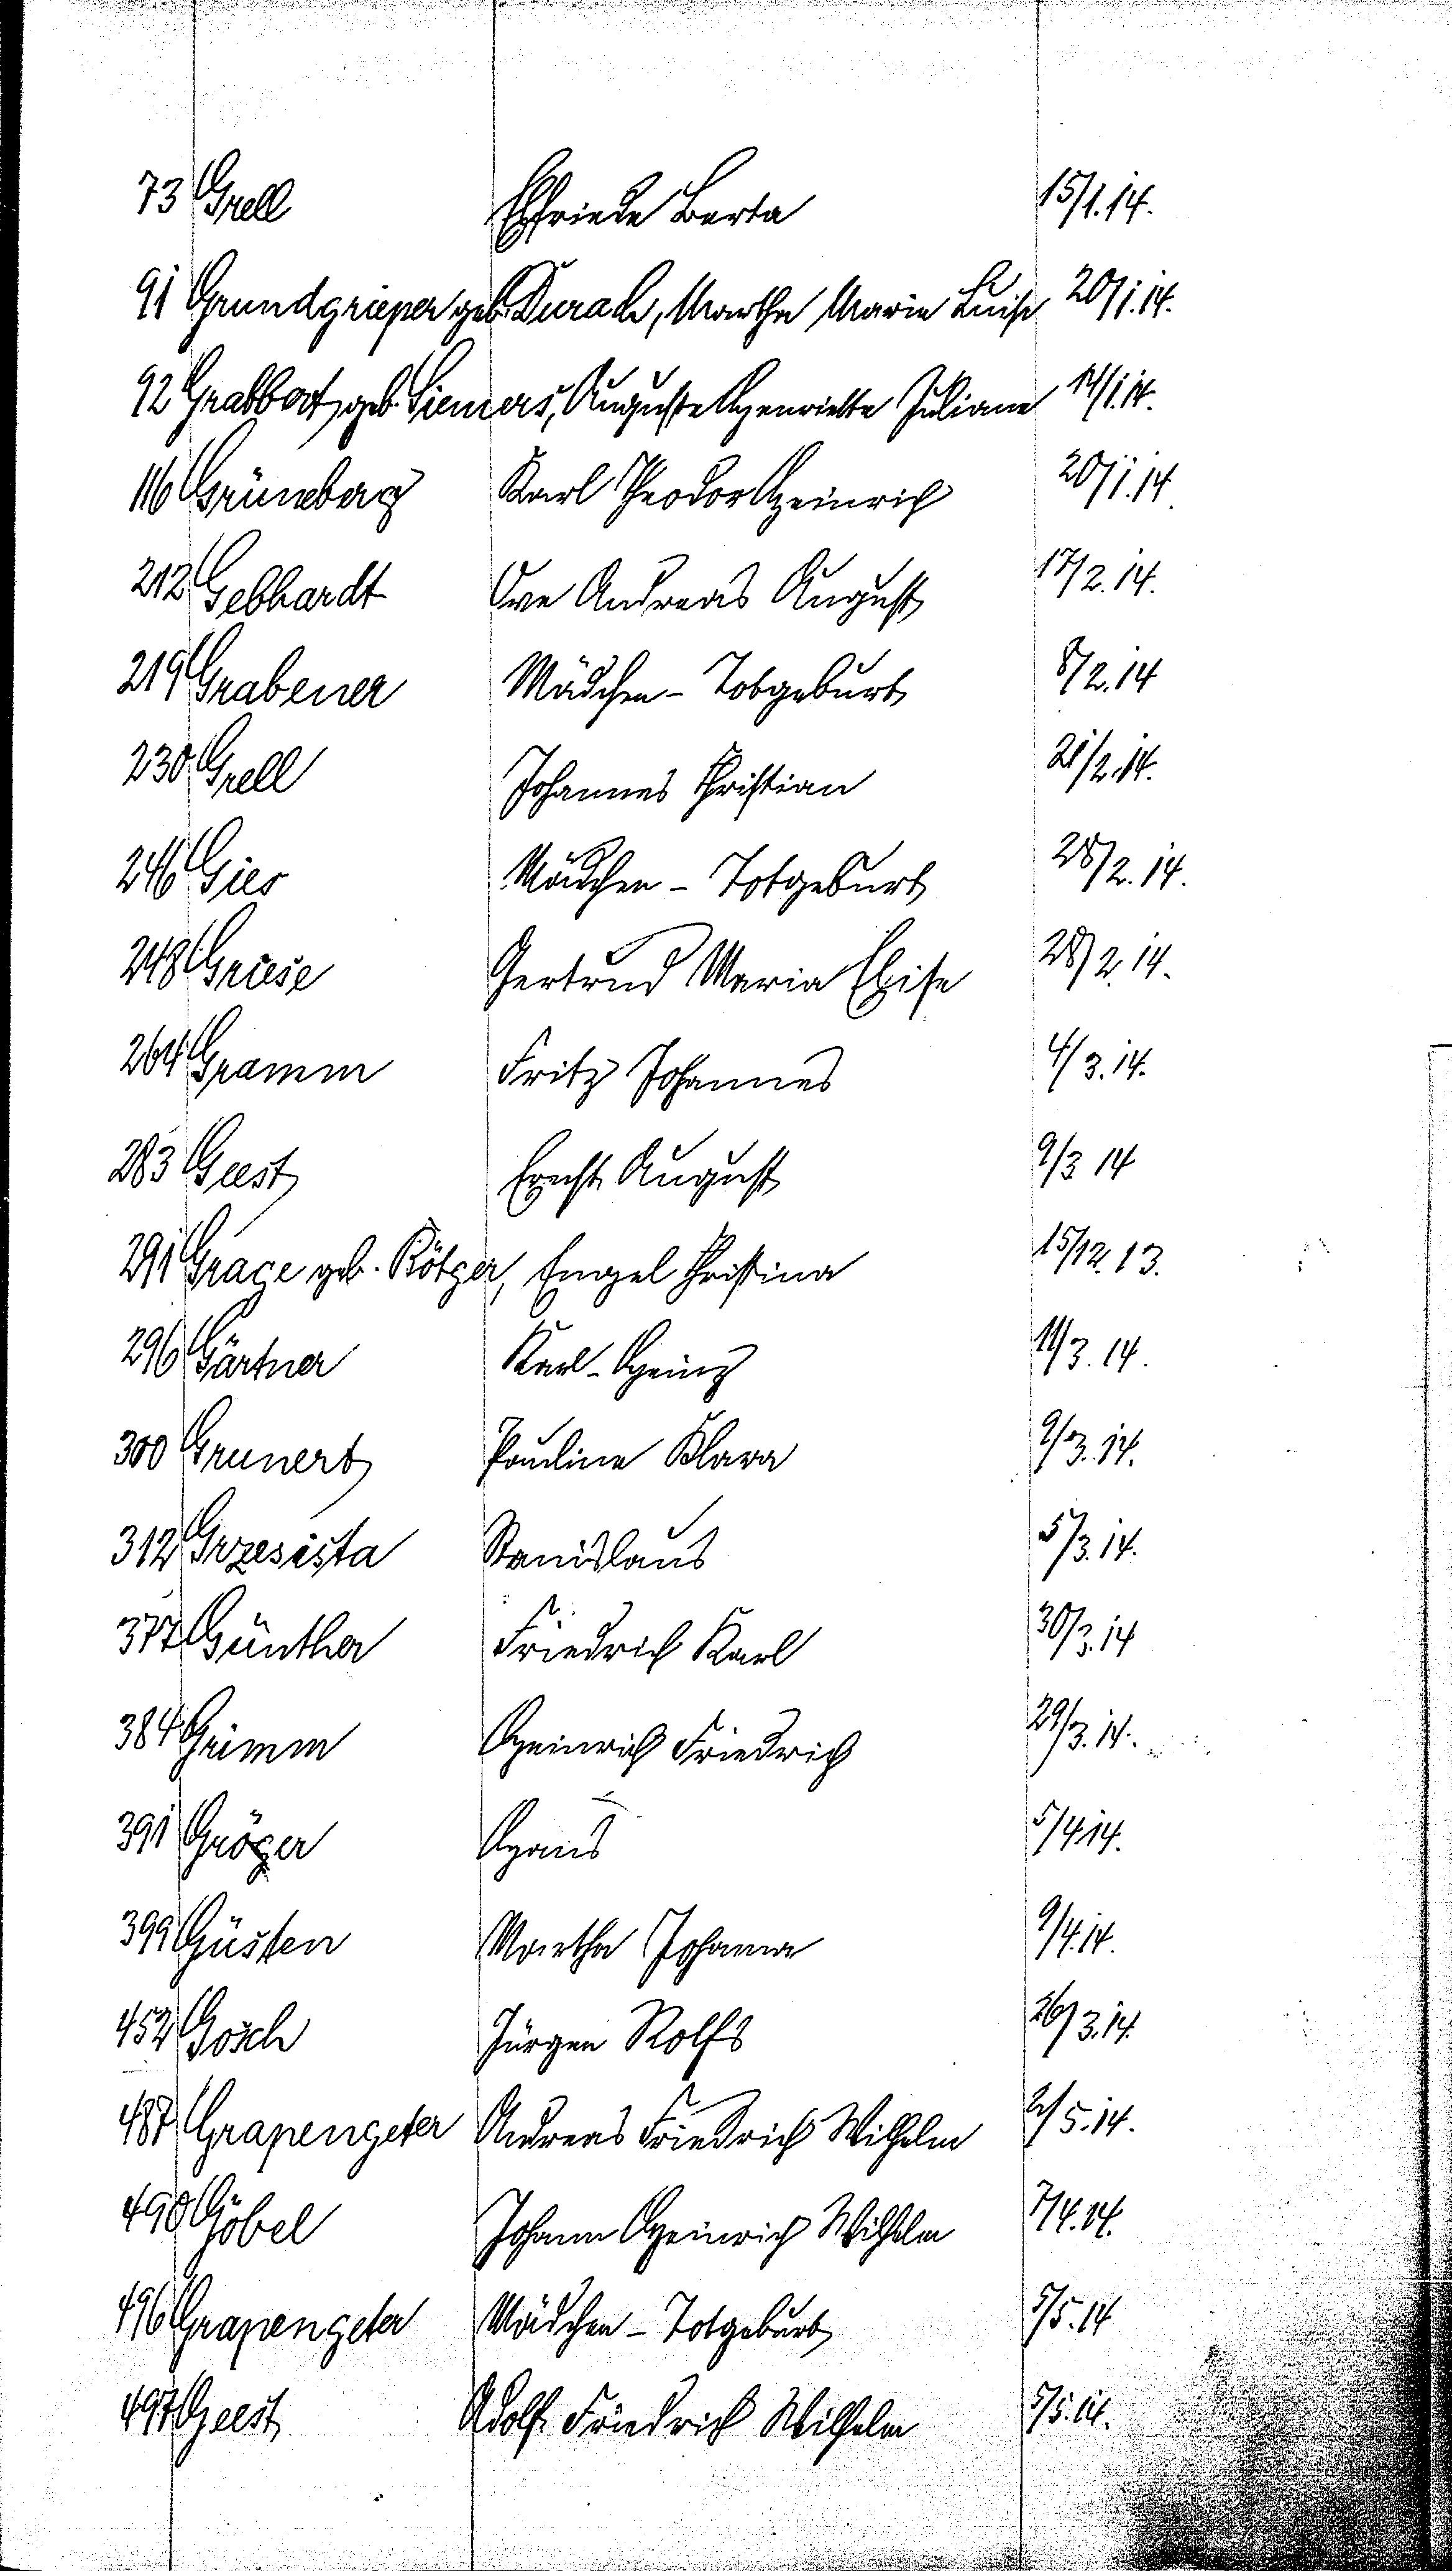 73 Grell Elfriede Berta 15/1.14.
91 Grundgrieper geb. Durach, Martha Marie Luise 20/1.14.
92 Grabbert, geb. Siemers, Auguste Henriette Juliane 14/1.14.
116 Grüneberg Karl Theodor Heinrich 20/1.14.
212 Gebhardt Ove Andreas August 17/2.14.
219 Grabener Mädchen - Totgeburt 8/2.14
230 Grell Johannes Christian 21/2.14.
246 Gies Mädchen - Totgeburt 28/2.14.
248 Griese Gertrud Maria Elise 28/2.14.
264 Gramm Fritz Johannes 4/3.14.
283 Geest Ernst August 9/3 14
291 Grage geb. Rötger, Engel Christina 15/12.13.
296 Gärtner Karl-Heinz 11/3.14.
300 Grunert Pauline Klara 9/3.14.
312 Grzesista Stanislaus 5/3.14.
377 Günther Friedrich Karl 30/3.14
384 Grimm Heinrich Friedrich 29/3.14.
391 Gröger Hans 5/4.14.
399 Güsten Martha Johanna 9/4.14.
452 Gosch Jürgen Rolfs 26/3.14.
487 Grapengeter Andreas Friedrich Wilhelm 2/5.14.
490 Göbel Johann Heinrich Wilhelm 7/4.14.
496 Grapengeter Mädchen - Totgeburt 5/5.14
497 Geest Adolf Friedrich Wilhelm 5/5.14.